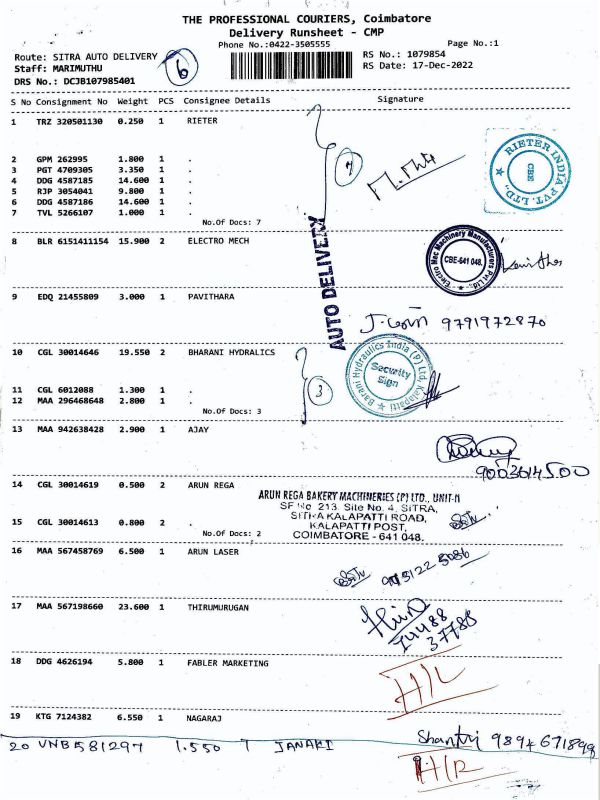 THE PROFESSIONAL COURIERS, Coimbatore
Delivery Runsheet - CMP
Phone No.:0422-3505555
Page No.:1
Route: SITRA AUTO DELIVERY
RS No.: 1079854
Staff: MARIMUTHU
6
RS Date: 17-Dec-2022
DRS No.: DCJB107985401
S No Consignment No Weight PCS Consignee Details Signature
1 TRZ 320501130 0.250 1 RIETER
RIETER INDIA PVT. LTD.,
CBE
2 GPM 262995 1.800 1 .
3 PGT 4709305 3.350 1 .
4 DDG 4587185 14.600 1 .
5 RJP 3054041 9.800 1 .
6 DDG 4587186 14.600 1 .
7 TVL 5266107 1.000 1 .
No.Of Docs: 7
7
AUTO DELIVERY
8 BLR 6151411154 15.900 2 ELECTRO MECH
Electro Mec Machinery Manufacturers Pvt Ltd
CBE-641 048.
9 EDQ 21455809 3.000 1 PAVITHARA
9791972870
10 CGL 30014646 19.550 2 BHARANI HYDRALICS
Barani Hydraulics India (P) Ltd, Kalapatti
Security
Sign
11 CGL 6012088 1.300 1 .
12 MAA 296468648 2.800 1 .
No.Of Docs: 3
3
13 MAA 942638428 2.900 1 AJAY
9003614500
14 CGL 30014619 0.500 2 ARUN REGA
ARUN REGA BAKERY MACHINERIES (P) LTD., UNIT-II
SF No. 213, Site No. 4, SITRA,
SITRA KALAPATTI ROAD,
KALAPATTI POST,
COIMBATORE - 641 048.
15 CGL 30014613 0.800 2 .
No.Of Docs: 2
16 MAA 567458769 6.500 1 ARUN LASER
17 MAA 567198660 23.600 1 THIRUMURUGAN
37785
18 DDG 4626194 5.800 1 FABLER MARKETING
19 KTG 7124382 6.550 1 NAGARAJ
Shanthi 9894671899
20 VNB581297 1.550 1 JANAKI